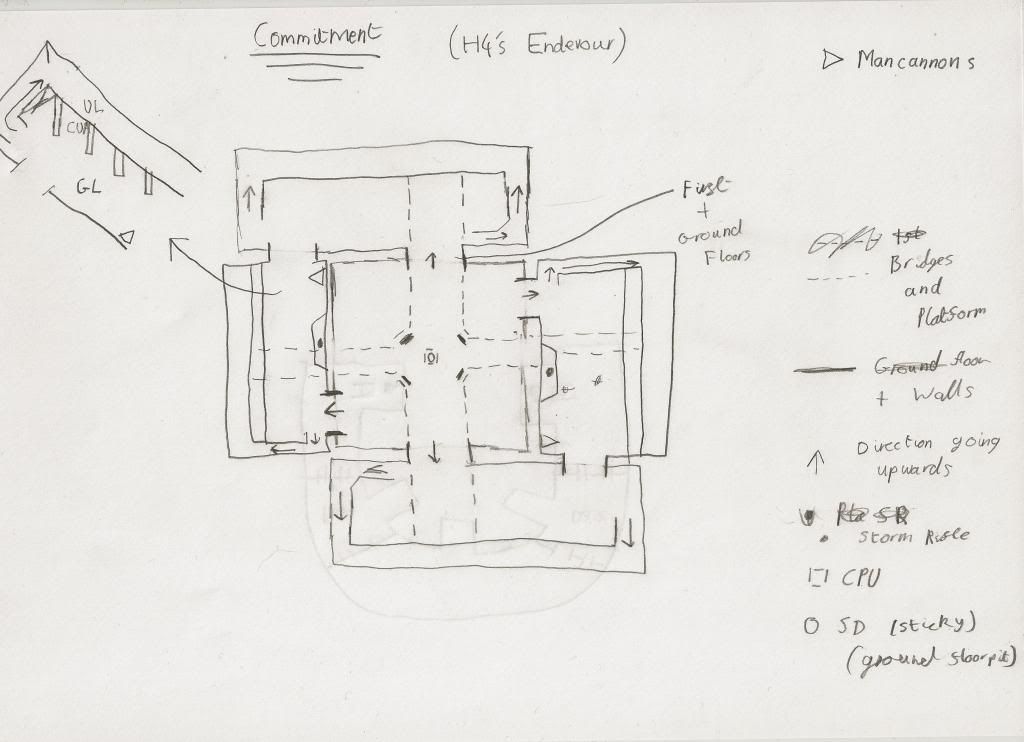 Commitment (H4's Endevour)
Mancannons
UL
CU
GL
First
+
Ground
Floors
1st
Bridges
and
Platform
Ground floor
+ Walls
Direction going
upwards
SR
Storm Rifle
CPU
SD (sticky)
(ground floor pit)